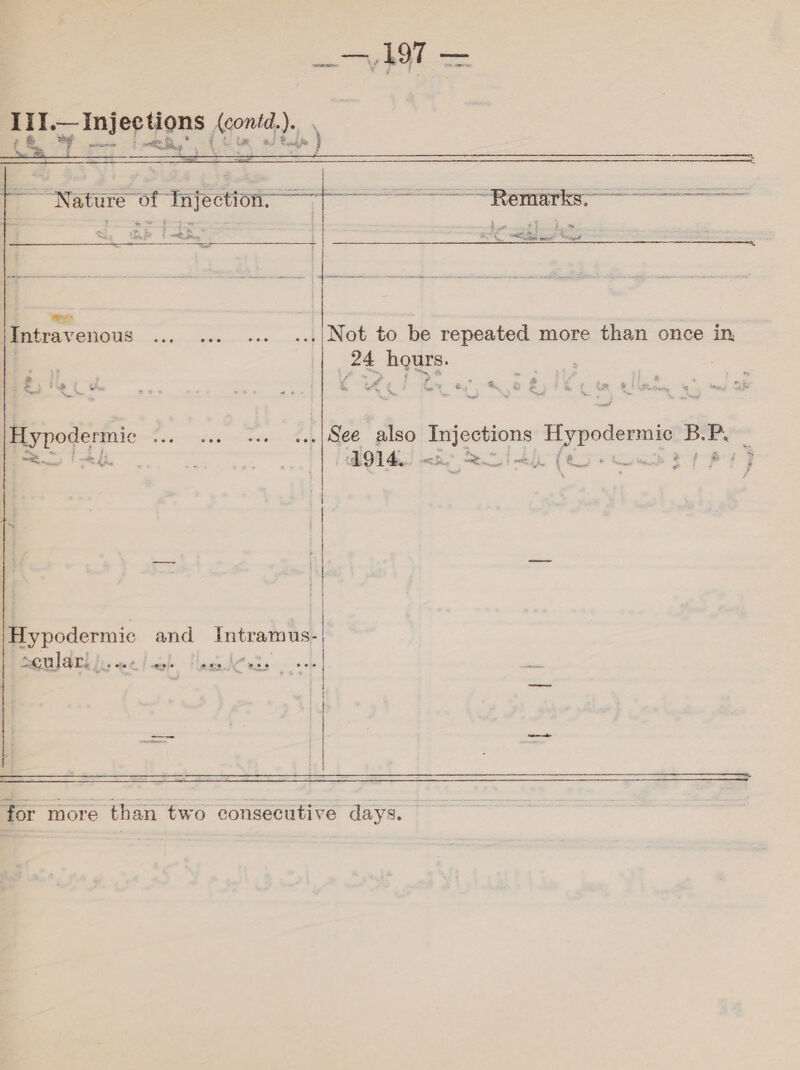 — 197 —
III.—Injections (contd.).
Nature of Injection.
Remarks.
Intravenous ... ... ... ...
Not to be repeated more than once in
24 hours.
Hypodermic ... ... ... ...
See also Injections Hypodermic B.P.
1914.
—
—
Hypodermic and Intramus-
cular. ... ... ... ... ...
—
—
—
for more than two consecutive days.